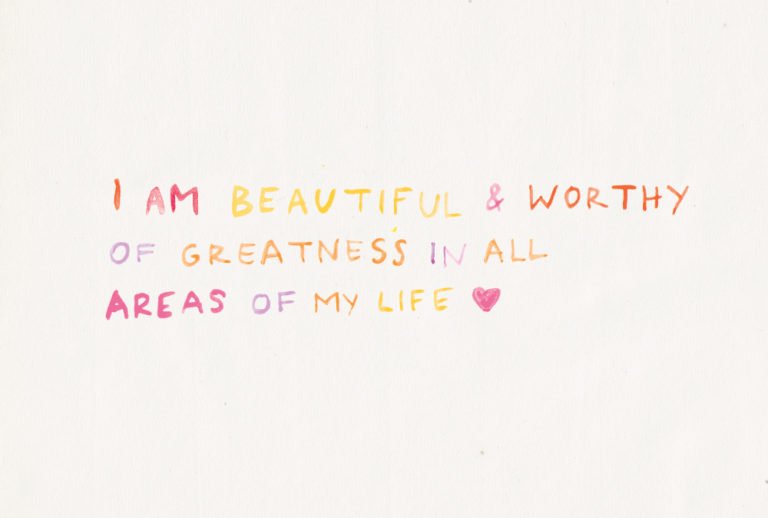 I AM BEAUTIFUL & WORTHY
OF GREATNESS IN ALL
AREAS OF MY LIFE ♥